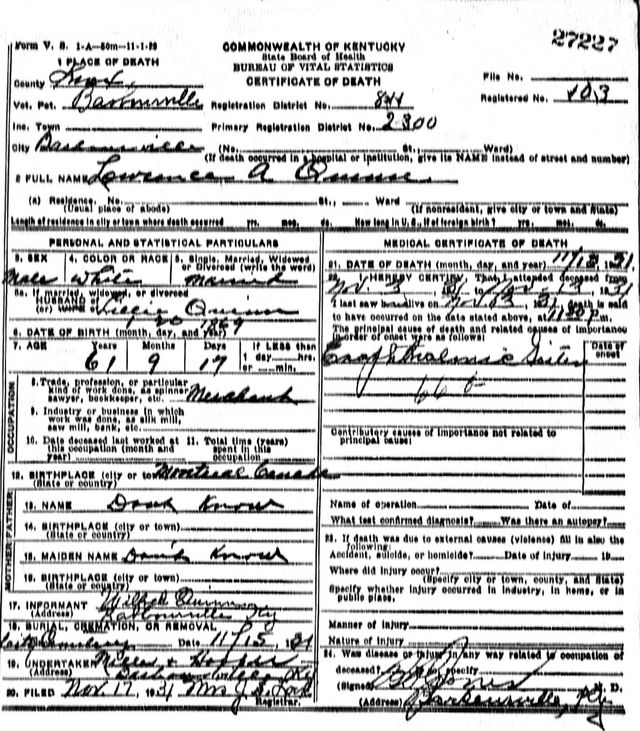 27227
Form V. S. 1-A—50m—11-1-29
COMMONWEALTH OF KENTUCKY
State Board of Health
BUREAU OF VITAL STATISTICS
CERTIFICATE OF DEATH
1 PLACE OF DEATH
County Knox
Vot. Pct. Barbourville
Inc. Town
City Barbourville
File No.
Registered No. 103
Registration District No. 844
Primary Registration District No. 2300
(No. St., Ward)
(If death occurred in a hospital or institution, give its NAME instead of street and number)
2 FULL NAME Lawrence A
(a) Residence. No. St., Ward
(Usual place of abode) (If nonresident, give city or town and State)
Length of residence in city or town where death occurred yrs. mos. ds. How long in U. S., if of foreign birth? yrs. mos. ds.
PERSONAL AND STATISTICAL PARTICULARS
3. SEX 4. COLOR OR RACE 5. Single, Married, Widowed
or Divorced (write the word)
Male White Married
5a. If married, widowed, or divorced
HUSBAND of
(or) WIFE of Lillie Quinn
6. DATE OF BIRTH (month, day, and year)
7. AGE Years Months Days If LESS than
61 9 17 1 day hrs.
or min.
OCCUPATION
8. Trade, profession, or particular
kind of work done, as spinner,
sawyer, bookkeeper, etc. Merchant
9. Industry or business in which
work was done, as silk mill,
saw mill, bank, etc.
10. Date deceased last worked at 11. Total time (years)
this occupation (month and spent in this
year) occupation
12. BIRTHPLACE (city or town) Montreal Canada
(State or country)
FATHER
13. NAME Don't Know
14. BIRTHPLACE (city or town)
(State or country)
MOTHER
15. MAIDEN NAME Don't Know
16. BIRTHPLACE (city or town)
(State or country)
17. INFORMANT
(Address) Barbourville Ky
18. BURIAL, CREMATION, OR REMOVAL
Cemetery Date 11/15, 1931
19. UNDERTAKER
(Address) Barbourville, Ky
20. FILED Nov. 17, 1931 Mrs J.
Registrar.
MEDICAL CERTIFICATE OF DEATH
21. DATE OF DEATH (month, day, and year) 11/13, 1931
22. I HEREBY CERTIFY, That I attended deceased from
Nov. 3, 31, to Nov. 13, 1931
I last saw him alive on Nov. 13, 31, death is said
to have occurred on the date stated above, at m.
The principal cause of death and related causes of importance
in order of onset were as follows:
Date of
onset
Exophthalmic
Contributory causes of importance not related to
principal cause:
Name of operation Date of
What test confirmed diagnosis? Was there an autopsy?
23. If death was due to external causes (violence) fill in also the
following:
Accident, suicide, or homicide? Date of injury 19
Where did injury occur?
(Specify city or town, county, and State)
Specify whether injury occurred in industry, in home, or in
public place.
Manner of injury
Nature of injury
24. Was disease or injury in any way related to occupation of
deceased? If so, specify
(Signed) Jones M. D.
(Address) Barbourville, Ky.